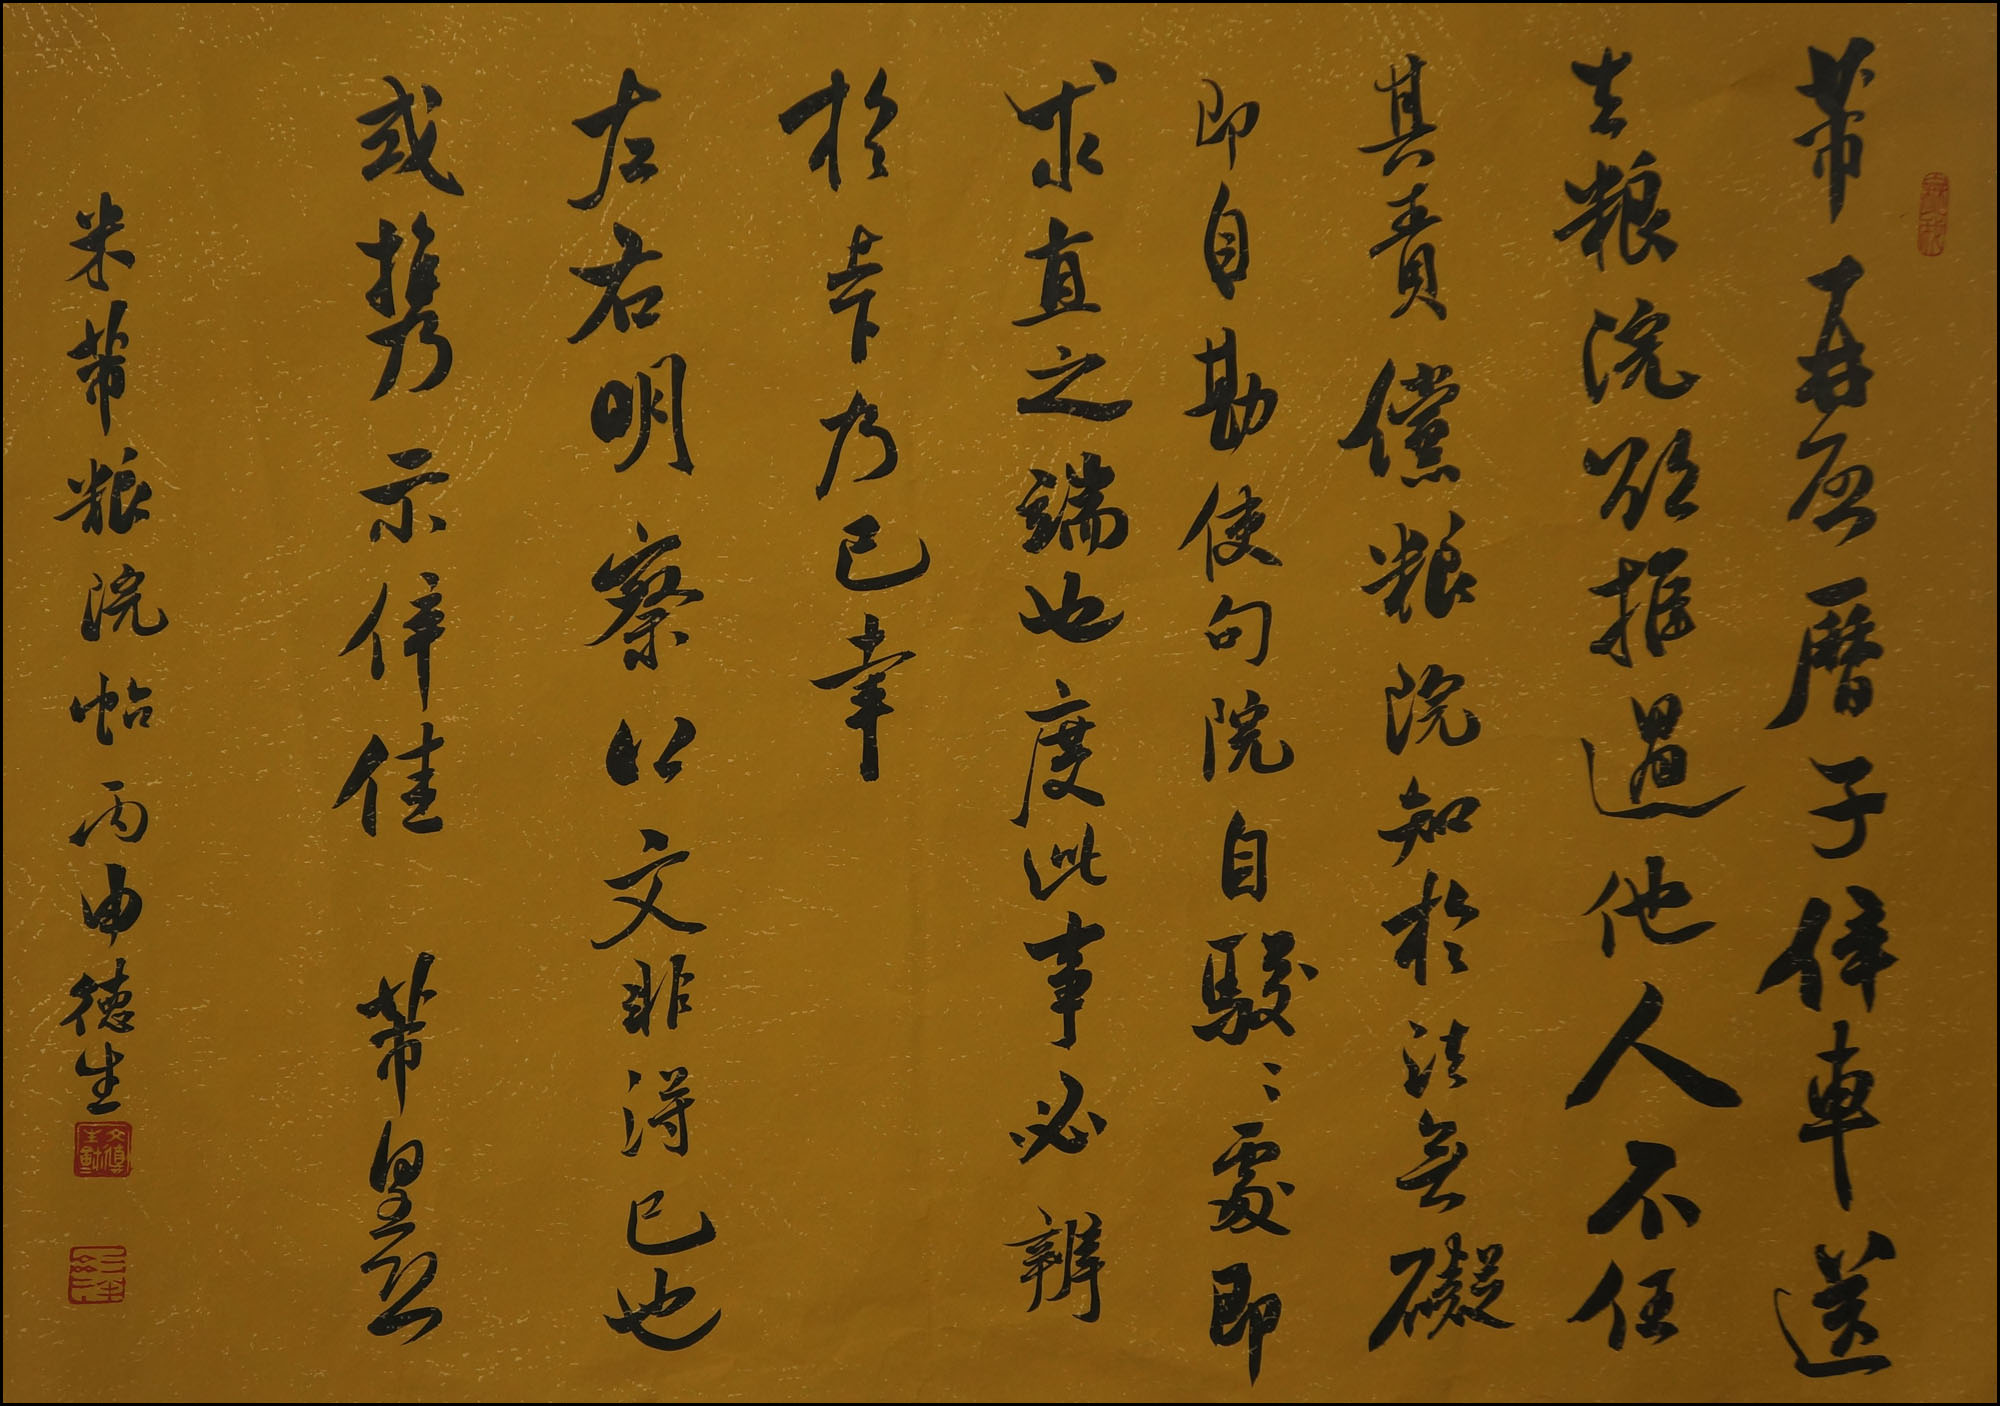 芾再启曆子倅車送
去粮浣欲推過他人不任
其責儻粮院知於法無礙
即自勘使句院自駁〻處即
求直之端也度此事必辨
於卡乃已幸
左右明察公文非得已也
或携示倅佳 芾皇恐
米芾粮浣帖丙申德生